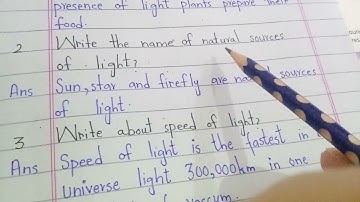 presence of light plants prepare their
food.
2 Write the name of natural sources
of light?
Ans Sun, star and firefly are natural sources
of light.
3 Write about speed of light?
Ans Speed of light is the fastest in
Universe light 300,000km in one
vacuum.